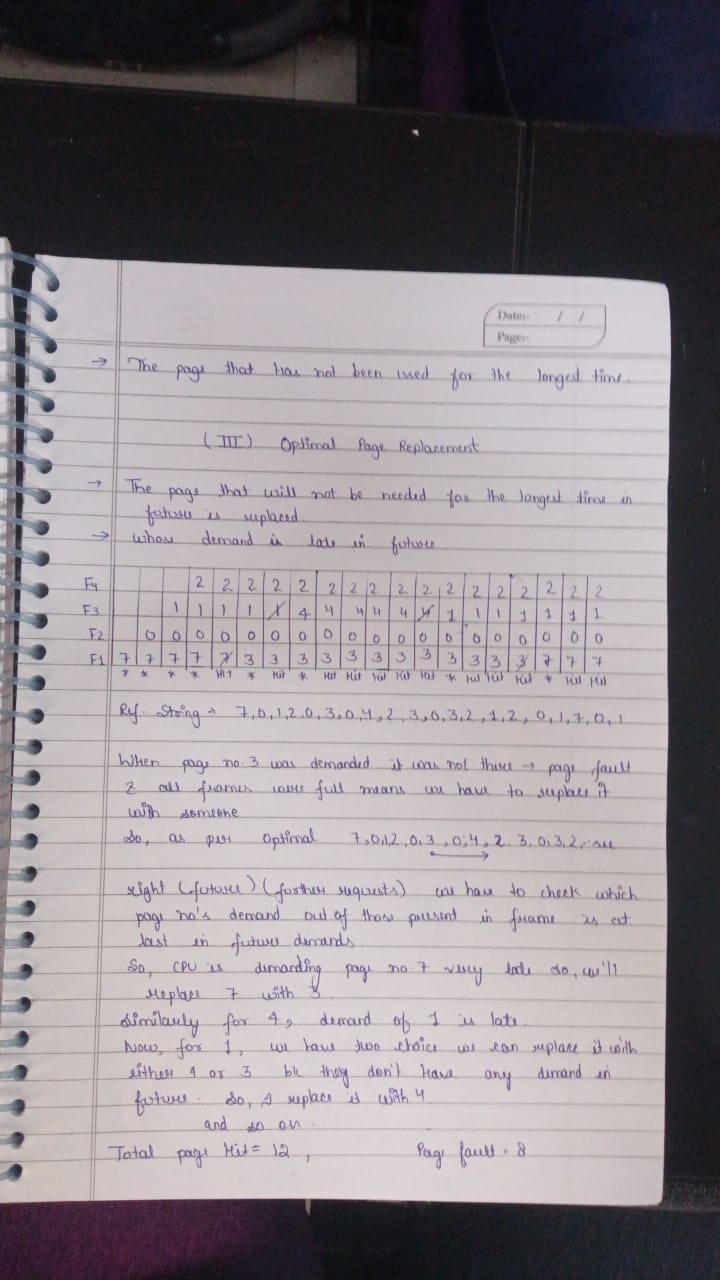 Date:- / /
Page:-
→ The page that has not been used for the longest time.
(III) Optimal Page Replacement
→ The page that will not be needed for the longest time in
future is replaced
→ whose demand is late in future
F4 2 2 2 2 2 2 2 2 2 2 2 2 2 2 2 2 2
F3 1 1 1 1 1 4 4 4 4 4 4 1 1 1 1 1 1 1
F2 0 0 0 0 0 0 0 0 0 0 0 0 0 0 0 0 0 0 0
F1 7 7 7 7 7 3 3 3 3 3 3 3 3 3 3 3 3 7 7 7
* * * * Hit * Hit * Hit Hit Hit Hit Hit * Hit Hit Hit * Hit Hit
Ref. String → 7,0,1,2,0,3,0,4,2,3,0,3,2,1,2,0,1,7,0,1
When page no. 3 was demanded it was not there → page fault
& all frames were full means we have to replace it
with someone
So, as per Optimal 7,0,1,2,0,3,0,4,2,3,0,3,2, see
right (future) (further requests) we have to check which
page no's demand out of those present in frame is at
last in future demands.
So, CPU is demanding page no 7 very late so, we'll
replace 7 with 3
similarly for 4, demand of 1 is late
Now, for 1, we have two choice we can replace it with
either 4 or 3 b/c they don't have any demand in
future. So, I replace it with 4
and so on.
Total page Hit = 12, Page fault = 8